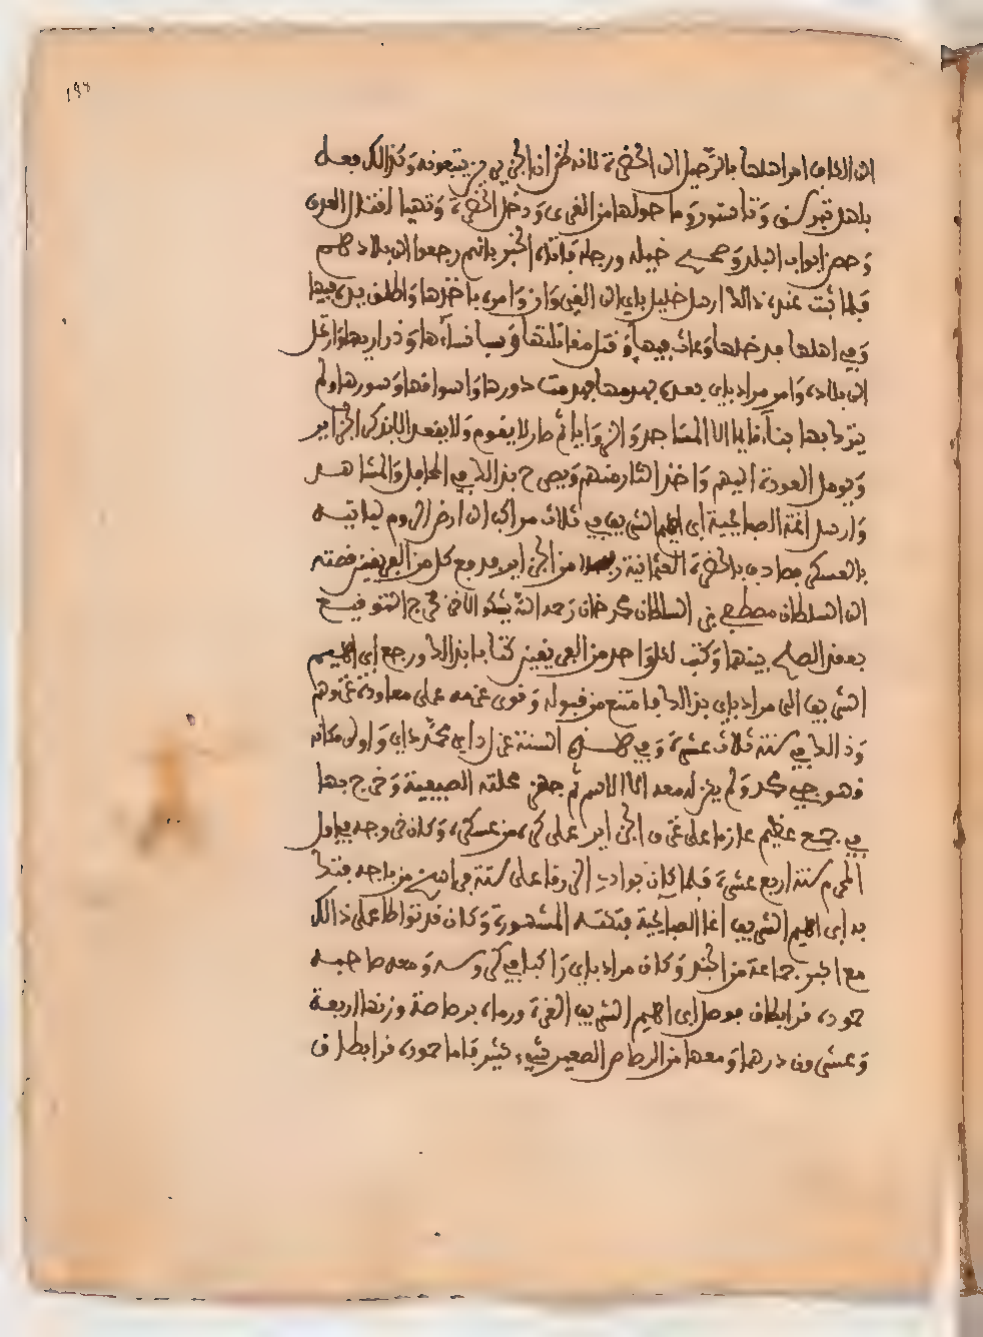 ١٩٨
الى الكاف امر اهلها بالرحيل الى الحضرة لانه ظن ان الجزيريين يتبعونه وكذالك فعل
باهل تبرسق وتاستور وما حولها من القرى ودخل الحضرة وتهيا لقتال العدو
وحصن ابواب البلد خيله ورجله فاتاه الخبر بانهم رجعوا الى بلادهم
فلما ثبت عنده ذالك ارسل خليل باي الى القيروان وامره باخذها واطلق يده فيها
وفي اهلها فدخلها وعاث فيها وقتل مقاتلتها وسبا نساءها وذراريها وارتحل
الى بلاده وامر مراد باي بعده بهدمها فهدمت دورها واسواقها وسورها ولم
يترك بها بناء قايما الا المساجد والزوايا ثم صار لا يقوم ولا يقعد الا بذكر الجزاير
ويومل العودة اليهم واخذ الثار منهم ويصرح بذالك في المحافل والمشاهد
وارسل اغة الصبايحية ابراهيم الشريف في ثلاث مراكب الى ارض الروم لياتيه
بالعسكر فصادف بالحضرة العثمانية من الجزاير فرفع كل من الفريقين قصته
الى السلطان مصطفى بن السلطان محمد خان رحمه الله فخرج التوقيع
بعقد الصلح بينهما وكتب لكل واحد من الفريقين كتابا بذالك ورجع ابراهيم
الشريف الى مراد باي بذالك فامتنع من قبوله وقوى عزمه على معاودة غزوهم
وذالك في سنة ثلاث عشرة وفي هذه السنة عزل داي محمد داي واولى مكانه
قهوجي محمد ولم يترك معه الا الاسم ثم جهز محلته الصيفية وخرج بها
في جمع عظيم عازما على غزو الجزاير على كره من عسكره وكان خروجه في اول
المحرم سنة اربع عشرة فلما كان بوادي الزرقا على ستة فراسخ من باجه فتك
به ابراهيم الشريف اغا الصبايحية فتكته المشهورة وكان قد تواطا على ذالك
مع الجز جماعة من الجند وكان مراد باي راكبا في كروسه ومعه صاحبه
حموده قرابطاق فوصل ابراهيم الشريف الغرة ورماه برصاصة وزنها اربعة
وعشرون درهما ومعها من الرصاص الصغير شيء كثير فاما حموده قرابطاق